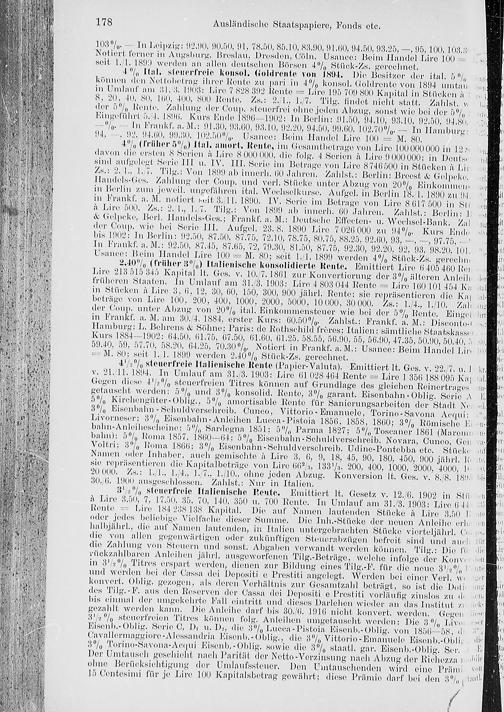 178 Ausländische Staatspapiere, Fonds etc.
103%. — In Leipzig: 92.90, 90.50, 91, 78.50, 85.10, 83.90, 91.60, 94.50, 93.25, —, 95, 100, 103.
Notiert ferner in Augsburg, Breslau, Dresden, Cöln. Usance: Beim Handel Lire 100 =
seit 1.1. 1899 werden an allen deutschen Börsen 4% Stück-Zs. gerechnet.
4% Ital. steuerfreie konsol. Goldrente von 1894. Die Besitzer der ital. 5%
können den Nettobetrag ihrer Rente zu pari in 4% konsol. Goldrente von 1894 umtau
in Umlauf am 31./3. 1903: Lire 7 828 392 Rente = Lire 195 709 800 Kapital in Stücken à
8, 20, 40, 80, 160, 400, 800 Rente. Zs.: 2./1., 1./7. Tilg. findet nicht statt. Zahlst. w
der 5% Rente. Zahlung der Coup. steuerfrei ohne jeden Abzug, sonst wie bei der 5%
Eingeführt 5./4. 1896. Kurs Ende 1896—1902: In Berlin: 91.50, 94.10, 93.10, 92.50, 94.80,
—% — In Frankf. a. M.: 91.30, 93.60, 93.10, 92.20, 94.50, 99.60, 102.70% — In Hamburg:
94, —, 92, 94.60, 99.30, 102.50%. Usance: Beim Handel Lire 100 = M. 80.
4% (früher 5%) Ital. amort. Rente, im Gesamtbetrage von Lire 100 000 000 in 12
davon die ersten 8 Serien à Lire 8 000 000, die folg. 4 Serien à Lire 9 000 000; in Deuts
sind aufgelegt Serie III u. IV. III. Serie im Betrage von Lire 8 746 500 in Stücken à Li
Zs.: 2./1., 1./7. Tilg.: Von 1889 ab innerh. 60 Jahren. Zahlst.: Berlin: Breest & Gelpcke,
Handels-Ges. Zahlung der Coup. und verl. Stücke unter Abzug von 20% Einkommen-
in Berlin zum jeweil. ungefähren ital. Wechselkurse. Aufgel. in Berlin 18./1. 1890 zu 94
in Frankf. a. M. notiert seit 3./11. 1890. IV. Serie im Betrage von Lire 8 617 500 in St
à Lire 500. Zs.: 2./1., 1./7. Tilg.: Von 1889 ab innerh. 60 Jahren. Zahlst.: Berlin: B
& Gelpcke, Berl. Handels-Ges.; Frankf. a. M.: Deutsche Effecten- u. Wechsel-Bank. Zal
der Coup. wie bei Serie III. Aufgel. 23./8. 1890 Lire 7 026 000 zu 94%. Kurs Ende
bis 1902: In Berlin: 92.50, 87.50, 87.75, 72.10, 78.75, 80.75, 88.25, 92.60, 93, —, —, 97.75, —
In Frankf. a. M.: 92.50, 87.45, 87.65, 72, 79.30, 81.50, 87.75, 92.30, 92.20, 92, 93, 98.20, 101.
Usance: Beim Handel Lire 100 = M. 80; seit 1./1. 1899 werden 4% Stück-Zs. gerechn.
2.40% (früher 3%) Italienische konsolidierte Rente. Emittiert Lire 6 405 460 Ren
Lire 213 515 345 Kapital lt. Ges. v. 10./7. 1861 zur Konvertierung der 3% älteren Anleih
früheren Staaten. In Umlauf am 31./3. 1903: Lire 4 803 044 Rente = Lire 160 101 454 Ka
in Stücken à Lire 3, 6, 12, 30, 60, 150, 300, 900 jährl. Rente; sie repräsentieren die Kap
beträge von Lire 100, 200, 400, 1000, 2000, 5000, 10 000, 30 000. Zs.: 1./4., 1./10. Zah
der Coup. unter Abzug von 20% ital. Einkommensteuer wie bei der 5% Rente. Eingef
in Frankf. a. M. am 30./4. 1884, erster Kurs: 60.50%. Zahlst.: Frankf. a. M.: Disconto-
Hamburg: L. Behrens & Söhne; Paris: de Rothschild frères; Italien: sämtliche Staatskasse
Kurs 1884—1902: 64.50, 61.75, 67.50, 61.60, 61.25, 58.55, 56.90, 55, 56.90, 47.35, 50.90, 50.40,
59.40, 59, 57.70, 58.20, 64.25, 70.30%. Notiert in Frankf. a. M.: Usance: Beim Handel Lire
= M. 80; seit 1./1. 1899 werden 2.40% Stück-Zs. gerechnet.
4½% steuerfreie Italienische Rente (Papier-Valuta). Emittiert lt. Ges. v. 22./7. u.
v. 21./11. 1894. In Umlauf am 31./3. 1903: Lire 61 028 464 Rente = Lire 1 356 188 095 Ka
Gegen diese 4½% steuerfreien Titres können auf Grundlage des gleichen Reinertrages
getauscht werden: 5% und 3% konsolid. Rente, 3% garant. Eisenbahn-Oblig. Serie A
5% Kirchengüter-Oblig., 5% amortisable Rente für Sanierungsarbeiten der Stadt Ne
3% Eisenbahn-Schuldverschreib. Cuneo, Vittorio-Emanuele, Torino-Savona-Acqui;
Livorneser: 3% Eisenbahn-Anleihen Lucca-Pistoia 1856, 1858, 1860; 3% Römische E
bahn-Anleihescheine; 5% Sardegna 1851; 5% Parma 1827; 5% Toscaner 1861 (Maremm
bahn); 5% Roma 1857, 1860—64; 5% Eisenbahn-Schuldverschreib. Novara, Cuneo, Gen
Voltri; 3% Roma 1866; 3% Eisenbahn-Schuldverschreib. Udine-Pontebba etc. Stücke
Namen oder Inhaber, auch gemischte à Lire 3, 6, 9, 18, 45, 90, 180, 450, 900 jährl. R
sie repräsentieren die Kapitalbeträge von Lire 66⅔, 133⅓, 200, 400, 1000, 2000, 4000,
20 000. Zs.: 1./1., 1./4., 1./7., 1./10., ohne jeden Abzug. Konversion lt. Ges. v. 8./8. 189
30./6. 1900 ausgeschlossen. Zahlst.: Nur in Italien.
3½% steuerfreie Italienische Rente. Emittiert lt. Gesetz v. 12./6. 1902 in Stü
à Lire 3.50, 7, 17.50, 35, 70, 140, 350 u. 700 Rente. In Umlauf am 31./3. 1903: Lire 6 44
Rente = Lire 184 238 138 Kapital. Die auf Namen lautenden Stücke à Lire 3.50
oder jedes beliebige Vielfache dieser Summe. Die Inh.-Stücke der neuen Anleihe erh
halbjährl., die auf Namen lautenden, in Italien untergebrachten Stücke vierteljährl. Co
die von allen gegenwärtigen oder zukünftigen Steuerabzügen befreit sind und auch
die Zahlung von Steuern und sonst. Abgaben verwandt werden können. Tilg.: Die fü
rückzahlbaren Anleihen jährl. ausgeworfenen Tilg.-Beträge, welche infolge der Konv
in 3½% Titres erspart werden, dienen zur Bildung eines Tilg.-F. für die neue 3½%
und werden bei der Cassa dei Depositi e Prestiti angelegt. Werden bei einer Verl.
konvert. Oblig. gezogen, als deren Verhältnis zur Gesamtzahl beträgt, so ist die Doti
des Tilg.-F. aus den Reserven der Cassa dei Depositi e Prestiti vorläufig zinslos zu
bis einmal der umgekehrte Fall eintritt und dieses Darlehen wieder an das Institut
gezahlt werden kann. Die Anleihe darf bis 30./6. 1916 nicht konvert. werden. Gegen
3½% steuerfreien Titres können folg. Anleihen umgetauscht werden: Die 3% Livo
Eisenb.-Oblig. Serie C, D₁ u. D₂, die 3% Lucca-Pistoia Eisenb.-Oblig. von 1856—58, d
Cavallermaggiore-Alessandria Eisenb.-Oblig., die 3% Vittorio-Emanuele Eisenb.-Obli.
3% Torino-Savona-Acqui Eisenb.-Oblig. sowie die 3% staatl. gar. Eisenb.-Oblig. Ser.
Der Umtausch geschieht nach Parität der Netto-Verzinsung nach Abzug der Richezza
ohne Berücksichtigung der Umlaufssteuer. Den Umtauschenden wird eine Prämi
15 Centesimi für je Lire 100 Kapitalsbetrag gewährt; diese Prämie darf bei den 3%